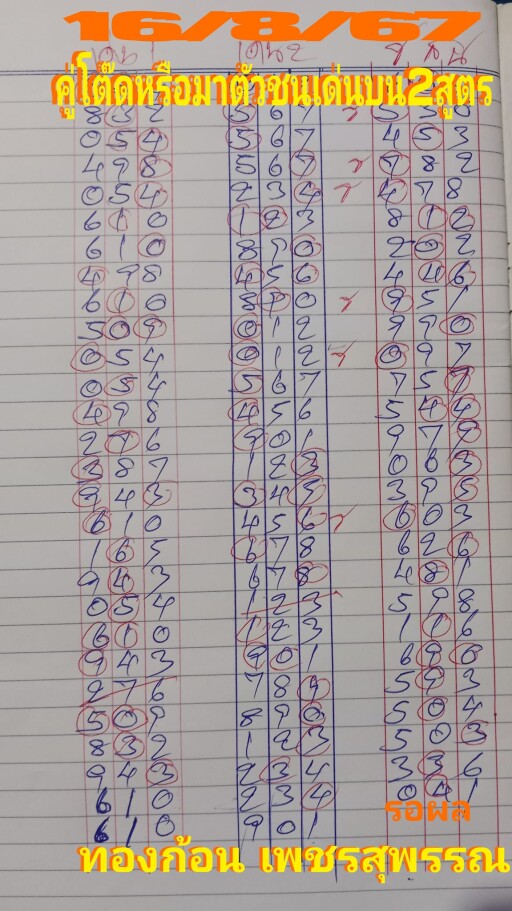 16/8/67
เด่น 1 เด่น 2 ร ล น
คู่โต๊ดหรือมาตัวชนเด่นบน2สูตร
8 3 2 5 6 7 5 5 0
0 5 4 5 6 7 4 5 3
4 9 8 5 6 7 7 8 2
0 5 4 2 3 4 4 7 8
6 1 0 1 2 3 8 1 2
6 1 0 8 9 0 2 0 2
4 9 8 4 5 6 4 4 6
6 1 0 8 9 0 9 5 1
5 0 9 0 1 2 9 9 0
0 5 4 0 1 2 0 9 7
0 5 4 5 6 7 7 5 7
4 9 8 4 5 6 5 4 4
2 7 6 9 0 1 9 7 9
3 8 7 1 2 3 0 6 3
9 4 3 3 4 5 3 9 5
6 1 0 4 5 6 6 0 3
1 6 5 6 7 8 6 2 6
9 4 3 6 7 8 4 8 1
0 5 4 1 2 3 5 9 8
6 1 0 1 2 3 1 1 6
9 4 3 9 0 1 6 9 0
2 7 6 7 8 9 5 9 3
5 0 9 8 9 0 5 0 4
8 3 2 1 2 3 5 0 3
9 4 3 2 3 4 3 3 6
6 1 0 2 3 4 0 4 1
รอผล
6 1 0 9 0 1
ทองก้อน เพชรสุพรรณ